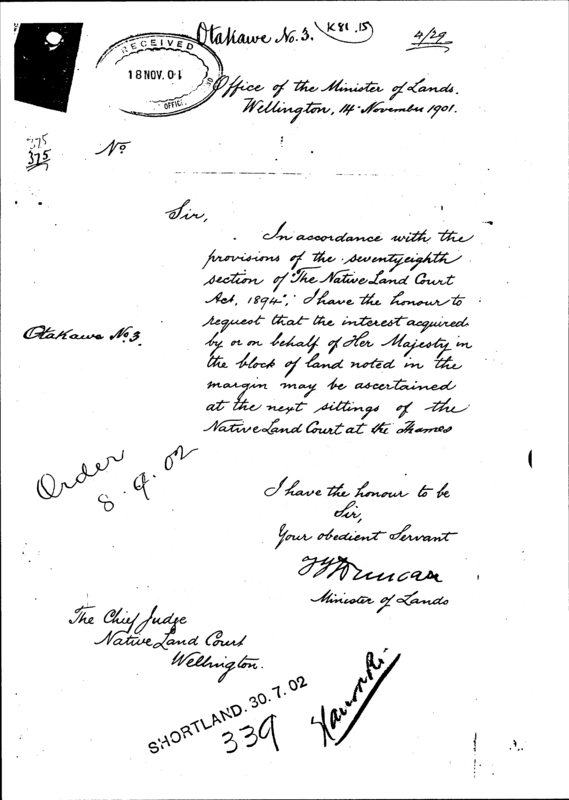 Otakawe No. 3.
K81.15
4/29
RECEIVED
18 NOV. 01
OFFICE
Office of the Minister of Lands.
Wellington, 14 November 1901.
375
375
No
Sir,
In accordance with the
provisions of the seventyeighth
section of "The Native Land Court
Act, 1894", I have the honour to
request that the interest acquired
by or on behalf of Her Majesty in
the block of land noted in the
margin may be ascertained
at the next sittings of the
Native Land Court at the Thames
Otakawe No. 3.
Order
8.9.02
I have the honour to be
Sir,
Your obedient Servant
Duncan
Minister of Lands
The Chief Judge
Native Land Court
Wellington.
SHORTLAND. 30.7.02
339